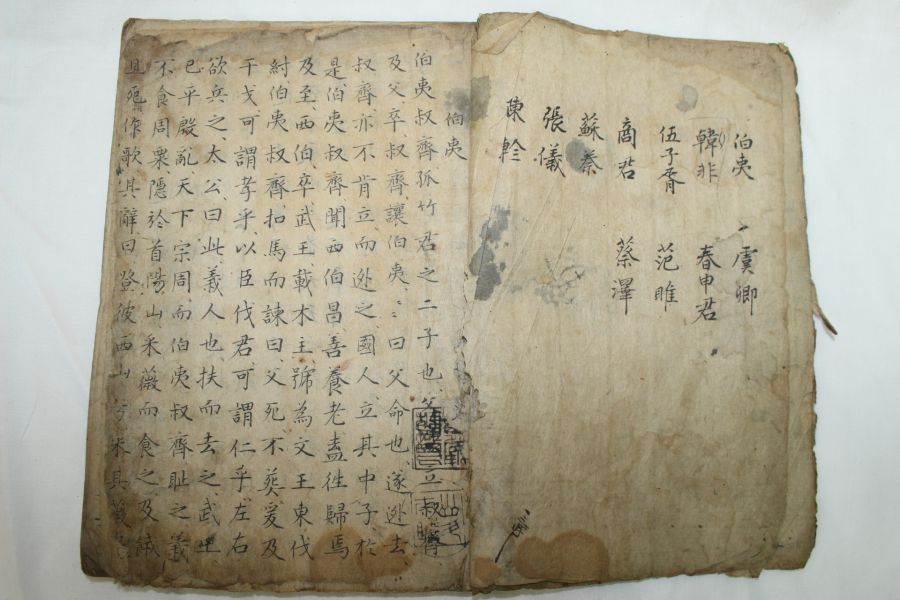 伯夷 虞卿
韓非 春申君
伍子胥 范睢
商君 蔡澤
蘇秦
張儀
陳軫
伯夷
伯夷叔齊孤竹君之二子也父立叔齊
及父卒叔齊讓伯夷〻曰父命也遂逃去
叔齊亦不肯立而逃之國人立其中子於
是伯夷叔齊聞西伯昌善養老盍徃歸焉
及至西伯卒武王載木主號為文王東伐
紂伯夷叔齊扣馬而諫曰父死不葬爰及
干戈可謂孝乎以臣伐君可謂仁乎左右
欲兵之太公曰此義人也扶而去之武王
已平殷亂天下宗周而伯夷叔齊恥之義
不食周粟隱於首陽山采薇而食之及餓
且死作歌其辭曰登彼西山兮采其薇矣